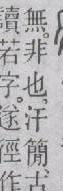 無。非也。汗簡古
讀若字。遂徑作